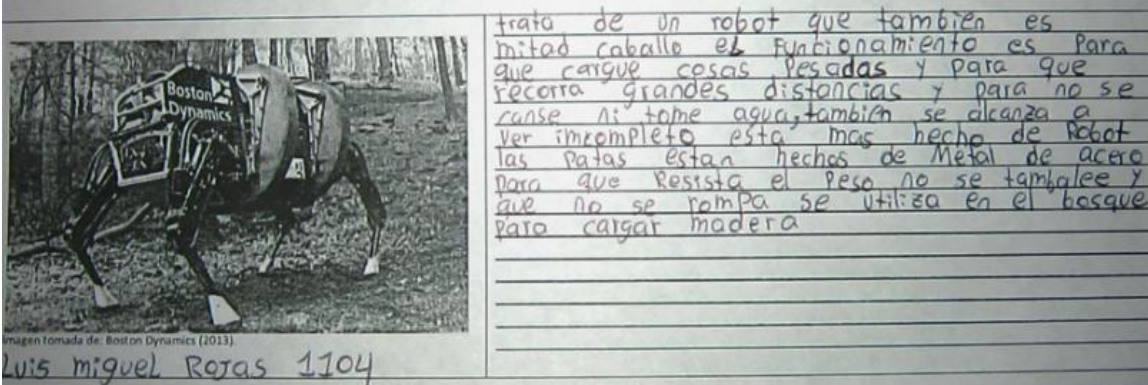 Boston
Dynamics
Imagen tomada de: Boston Dynamics (2013).
Luis miguel Rojas 1104
trata de un robot que tambien es
mitad caballo el Funcionamiento es Para
que cargue cosas Pesadas y para que
recorra grandes distancias y para no se
canse ni tome agua, tambien se alcanza a
ver imcompleto esta mas hecho de Robot
las Patas estan hechas de Metal de acero
para que Resista el Peso no se tambalee y
que no se rompa se utiliza en el bosque
para cargar madera